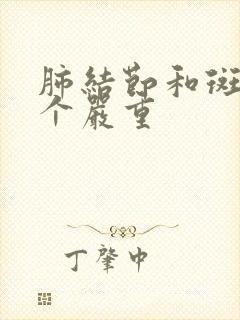 肺結節和斑
个嚴重
丁肇中